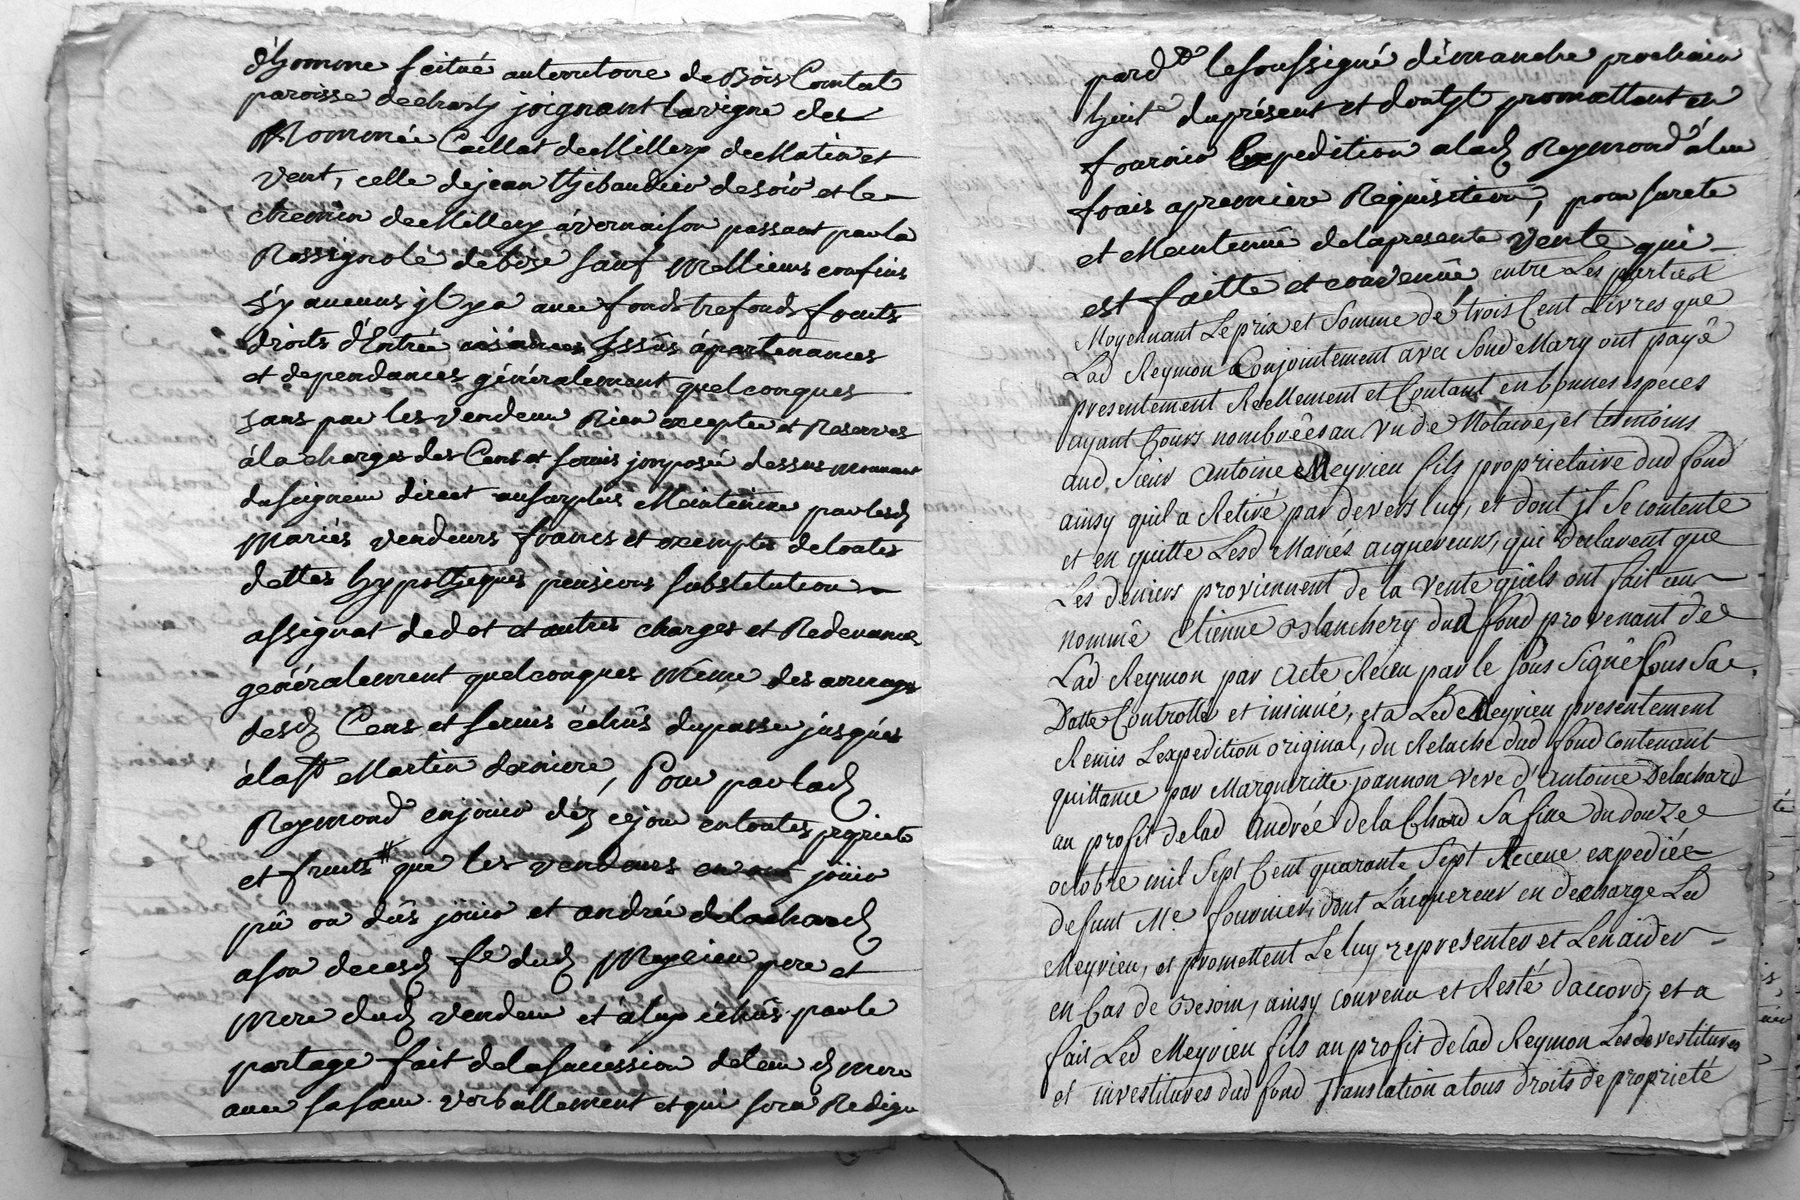 d'homme scitué au territoire de Bois Contat
paroisse de charly joignant la vigne des
Nommée Caillat de Millery de Matin et
vent, celle de jean thibaudier de soir et le
chemin de Millery à vernaison passant par la
Rossignole de bize sauf Meilleurs confins
s'y aucuns jl y a avec fonds trefonds fruits
droits d'Entrée aisances Jssûs ápartenances
et dependances généralement quelconques
sans par les vendeurs Rien excepter et Reserver
à la charge des Cens et servis jmposée dessus mouvant
du seigneur direct au surplus Maintenue par lesd
Mariés vendeurs francs et exempts de toutes
dettes hypothèques pensions substitution
assignat de dot et autres charges et Redevances
généralement quelconques Même des arrerages
desd Cens et servis échûs du passé jusques
à la st Martin derniere, Pour par lad
Reymond en jouir déz ce jour en toutes propriete
et fruits # que les vendeurs en ont jouir
pû ou dûs jouir et andrée delachard
a son deced fe dud Meyrieu pere et
Mere dud vendeur et à luy échûs par le
partage fait de la succession de leur d mere
avec sa sœur verballement et qui sera Redigé
pard le soussigné dimanche prochain
huit du présent et dont jl promettent en
fournir Expedition a lad Reymond à leur
frais a premiere Requisition, pour sureté
et Maintenüe de la presente vente qui
est faitte et convenüe entre Les parties
Moyennant Le prix et Somme de trois Cent Livres que
Lad Reymon Conjointement avec Sond Mary ont payé
presentement Reellement et Contant en bonnes especes
ayant Cours nombrées au vu de Notaire, et temoins
aud. Sieur Antoine Meyrieu fils proprietaire dud fond
ainsy quil a Retiré par devers luy, et dont jl Se contente
et en quitte Lesd Mariés acquereurs, qui Declarent que
Les deniers proviennent de la vente quils ont fait au
nommé Etienne Blanchery dud fond provenant de
Lad Reymon par Acte Recu par le Sous Signé Sous Sa
Datte Controllé et insinué, et a Led Meyrieu presentement
Remis Lexpedition original, du Relache dud fond contenant
quittance par Margueritte joannon veve d'Antoine Delachard
au profit de lad Andrée de la Chard Sa fille du douze
octobre mil Sept Cent quarante Sept Recue expediée
defunt Me. fournier, dont L'acquereur en decharge Led
Meyrieu, et promettent Le luy representer et Lenaider
en Cas de Besoin, ainsy convenu et Resté daccord, et a
fait Led Meyrieu fils au profit de lad Reymon Les devestitures
et investitures dud fond Translation a tous droits de propriété